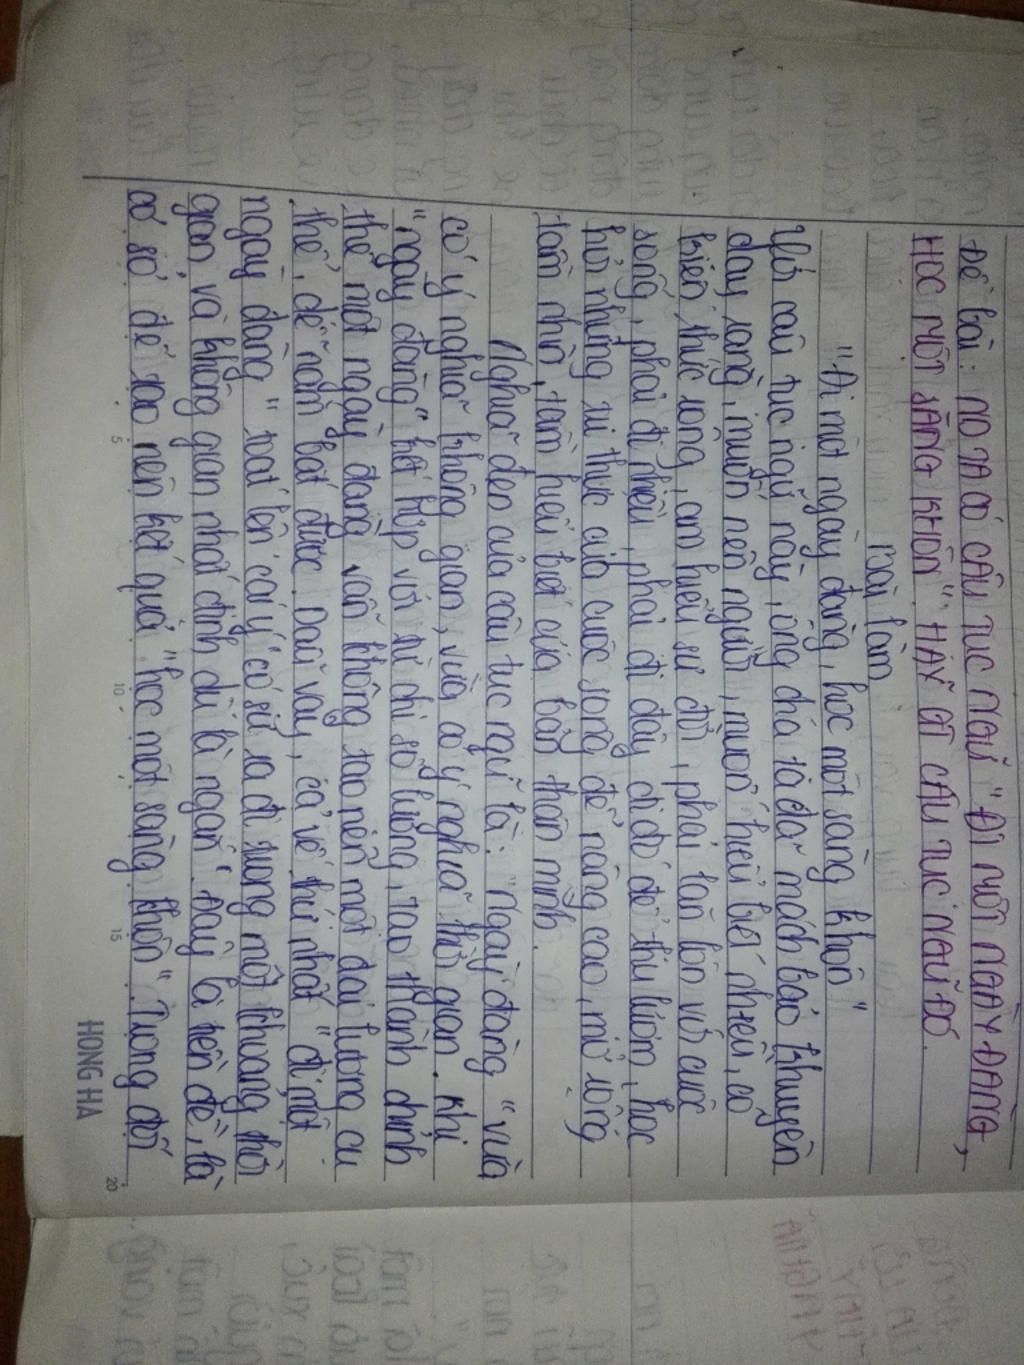 Đề bài: NDTA CÓ CÂU TỤC NGỮ "ĐI MỘT NGÀY ĐÀNG,
HỌC MỘT SÀNG KHÔN". HÃY GT CÂU TỤC NGỮ ĐÓ.
Bài làm
"Đi một ngày đàng, học một sàng khôn"
Với câu tục ngữ này, ông cha ta đã mách bảo khuyên
dạy rằng, muốn nên người, muốn hiểu biết nhiều, có
kiến thức rộng, am hiểu sự đời, phải lăn lộn với cuộc
sống, phải đi nhiều, phải đi đây đi đó để thu lượm, học
hỏi những tri thức của cuộc sống để nâng cao, mở rộng
tầm nhìn, tầm hiểu biết của bản thân mình.
Nghĩa đen của câu tục ngữ là: "Ngày đàng" vừa
có ý nghĩa không gian, vừa có ý nghĩa thời gian. Khi
"ngày đàng" kết hợp với từ chỉ số lượng, tạo thành chỉnh
thể một ngày đàng vẫn không tạo nên một đại lượng cụ
thể, để nắm bắt được. Dẫu vậy, cả vế thứ nhất "đi một
ngày đàng" toát lên cái ý có sự ra đi trong một khoảng thời
gian và không gian nhất định dù là ngắn. Đây là tiền đề, là
cơ sở để tạo nên kết quả "học một sàng khôn". Tương đối
5
10
15
20
HONG HA